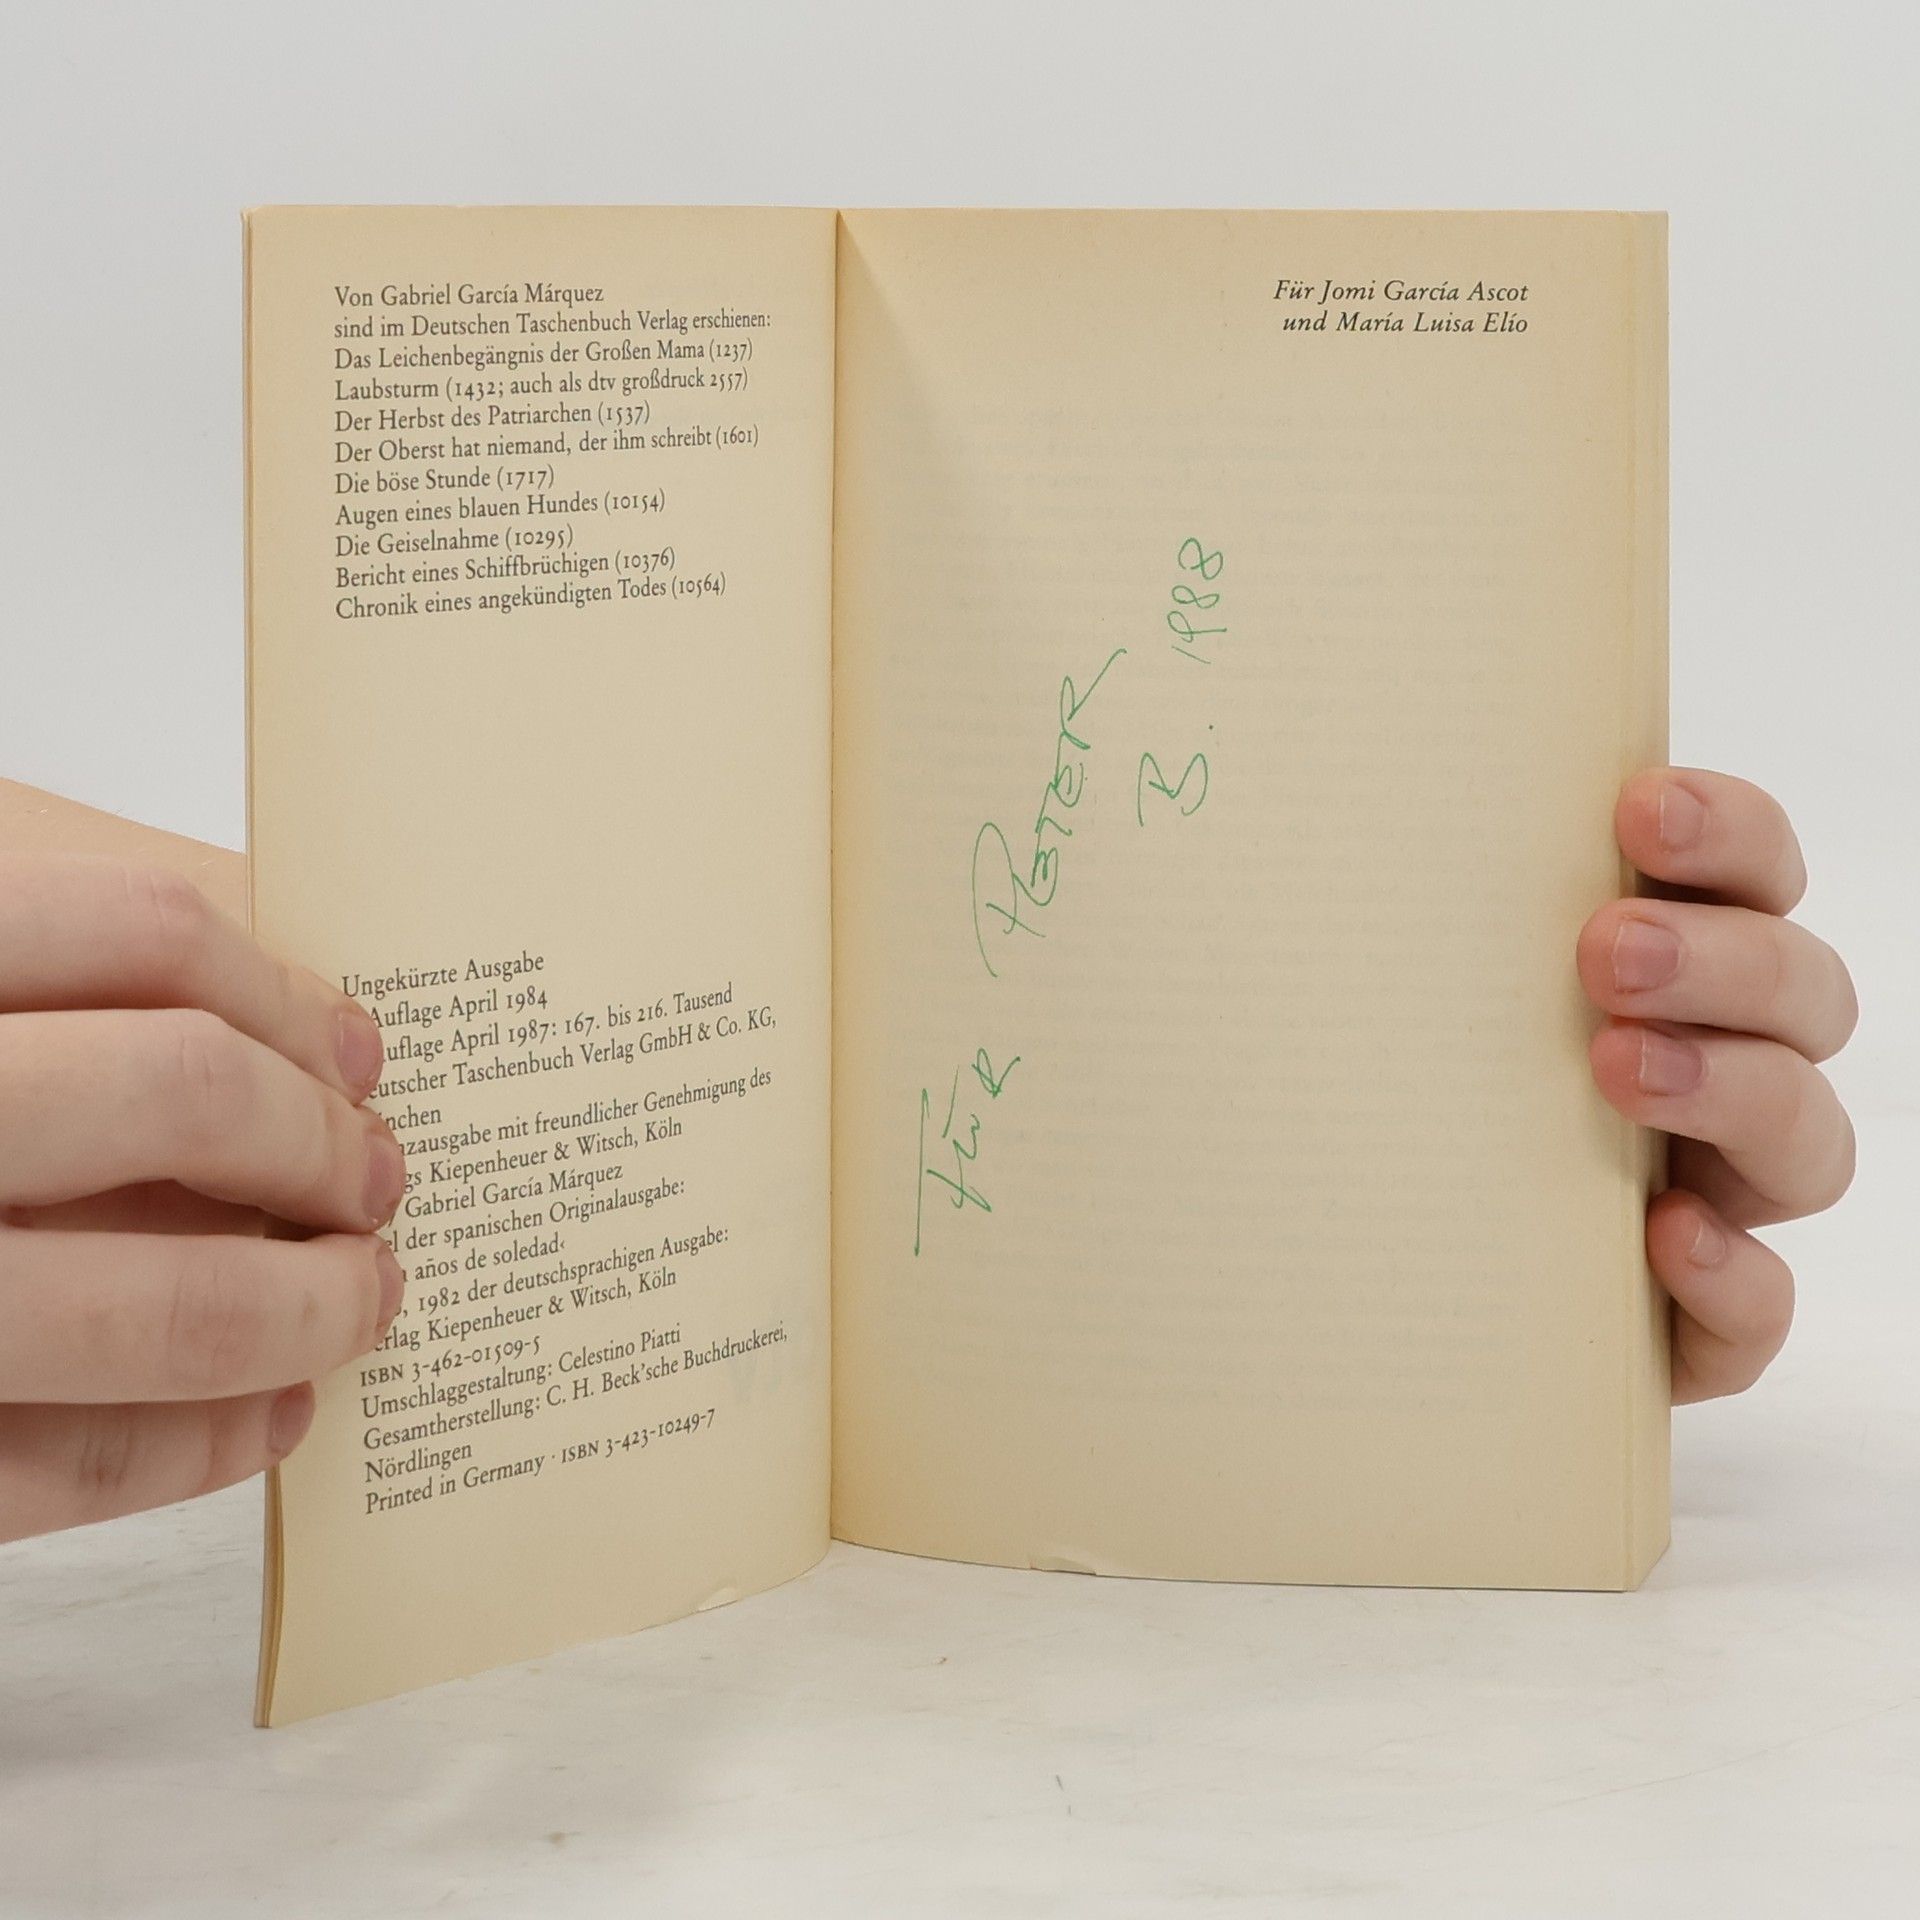 Von Gabriel García Márquez
sind im Deutschen Taschenbuch Verlag erschienen:
Das Leichenbegängnis der Großen Mama (1237)
Laubsturm (1432; auch als dtv großdruck 2557)
Der Herbst des Patriarchen (1537)
Der Oberst hat niemand, der ihm schreibt (1601)
Die böse Stunde (1717)
Augen eines blauen Hundes (10154)
Die Geiselnahme (10295)
Bericht eines Schiffbrüchigen (10376)
Chronik eines angekündigten Todes (10564)
Ungekürzte Ausgabe
Auflage April 1984
April 1987: 167. bis 216. Tausend
Taschenbuch Verlag GmbH & Co. KG,
mit freundlicher Genehmigung des
Kiepenheuer & Witsch, Köln
Gabriel García Márquez
der spanischen Originalausgabe:
años de soledad‹
1982 der deutschsprachigen Ausgabe:
Kiepenheuer & Witsch, Köln
ISBN 3-462-01509-5
Umschlaggestaltung: Celestino Piatti
Gesamtherstellung: C. H. Beck'sche Buchdruckerei,
Nördlingen
Printed in Germany · ISBN 3-423-10249-7
Für Jomi García Ascot
und María Luisa Elío
FÜR PETER
B. 1988